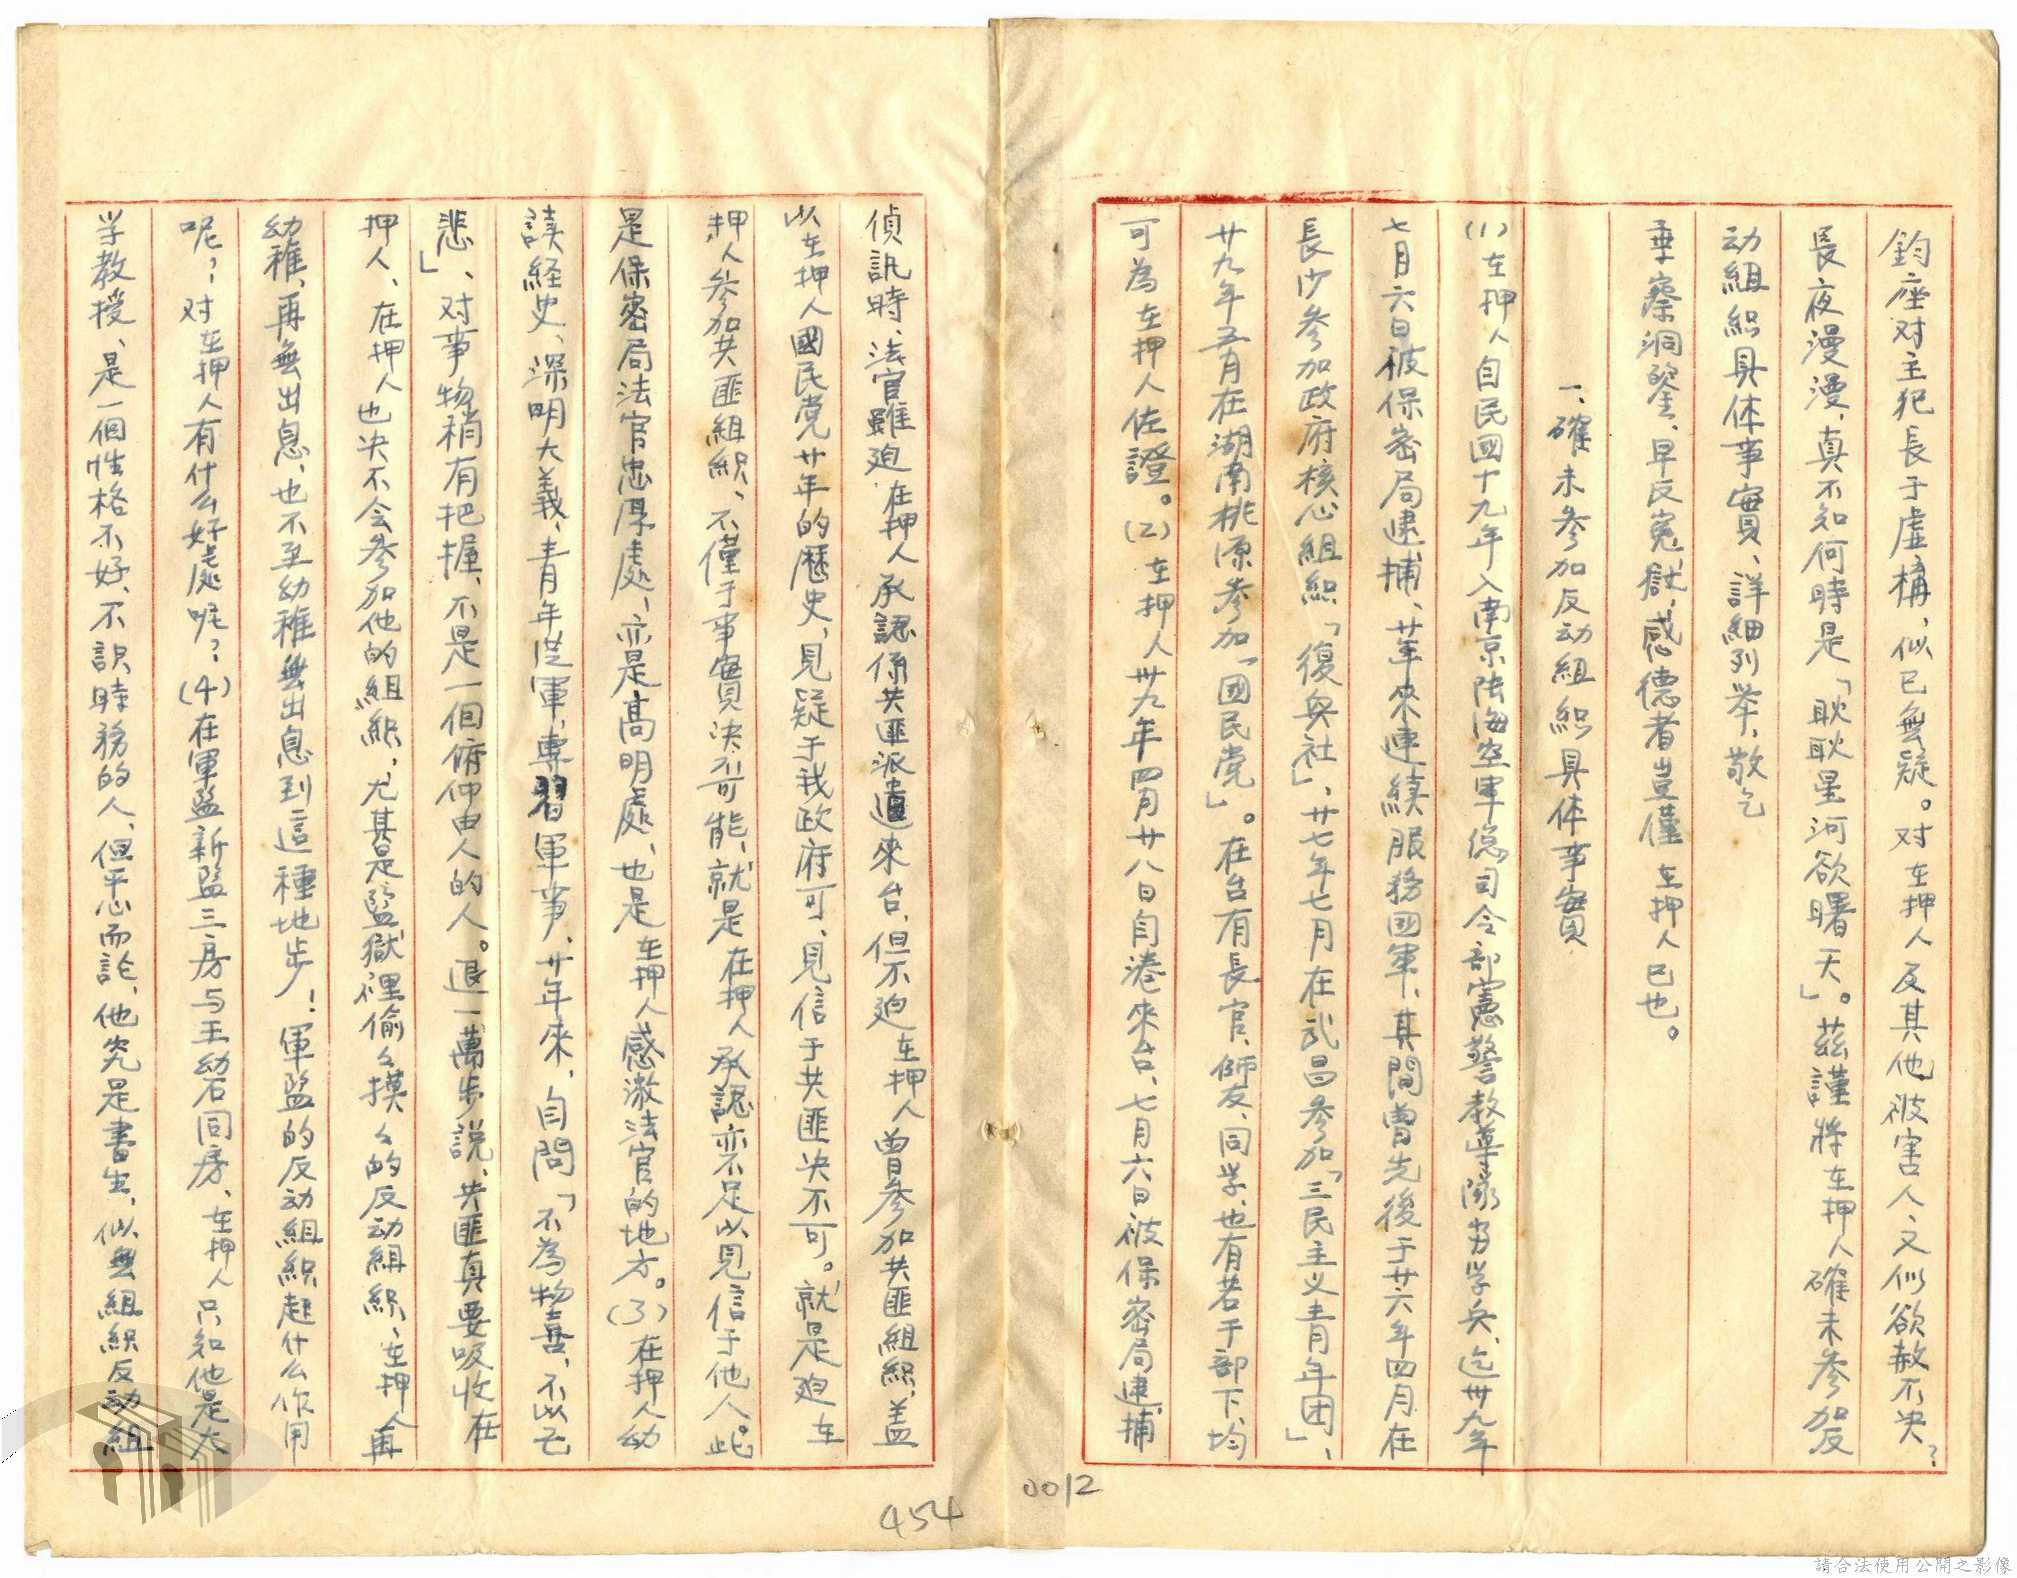 鈞座对主犯長于虛構，似已無疑。对在押人及其他被害人，又似欲赦不决？
長夜漫漫，真不知何時是「耿耿星河欲曙天」。茲謹將在押人確未參加反
动組織具体事實、詳細列举，敬乞
垂察洞鑒、早反冤獄，感德者豈僅 在押人已也。
一、確未參加反动組織具体事實
(1) 在押人自民國十九年入南京陸海空軍總司令部憲警教導隊当学兵、迄卅九年
七月六日被保密局逮捕、廿年來連續服務國軍、其間曾先後于廿六年四月在
長沙參加政府核心組織「復興社」、廿七年七月在武昌參加「三民主义青年团」、
廿九年五月在湖南桃源參加「國民党」。在台有長官、師友、同学、也有若干部下、均
可為在押人佐證。(2) 在押人卅九年四月廿八日自港來台、七月六日被保密局逮捕
偵訊時、法官雖迫 在押人承認係共匪派遣來台，但不迫在押人曾參加共匪組織，盖
以在押人國民党廿年的歷史，見疑于我政府可，見信于共匪决不可。就是迫在
押人參加共匪組織、不僅于事實决不可能，就是在押人承認亦不足以見信于他人。此
是保密局法官忠厚處，亦是高明處、也是在押人感激法官的地方。(3) 在押人幼
読経史、深明大義、青年從軍，專習軍事、廿年來，自問「不為物喜、不以己
悲」、对事物稍有把握、不是一個俯仰由人的人。退一萬步説、共匪真要吸收在
押人、在押人也决不会參加他的組織，尤其是監獄裡偷么摸么的反动組織、在押人再
幼稚，再無出息，也不至幼稚無出息到這種地步！軍監的反动組織起什么作用
呢？对在押人有什么好處呢？(4) 在軍監新監三房与王幼石同房、在押人只知他是大
学教授、是一個性格不好、不识時務的人，但平心而論，他究是書生，似無組織反动組
454
0012
請合法使用公開之影像